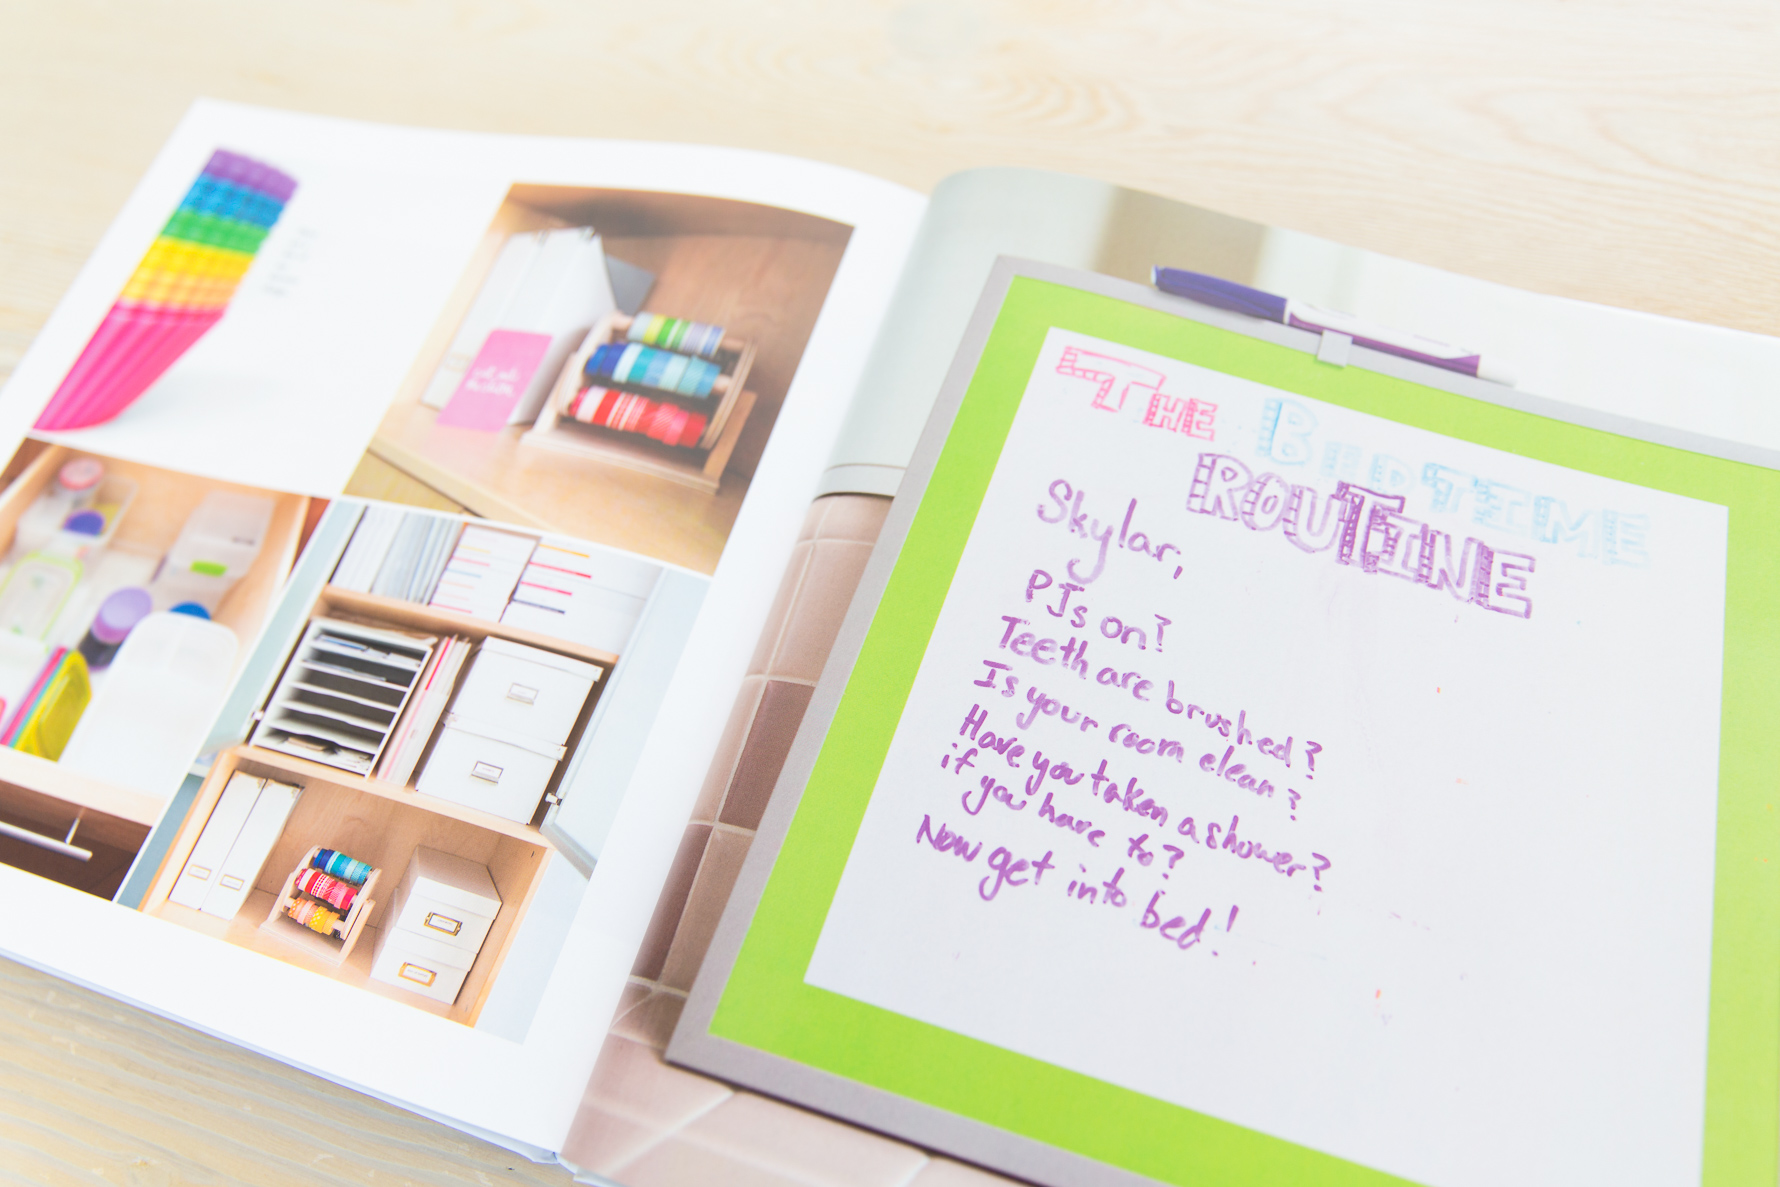 THE BEDTIME
ROUTINE
Skylar,
PJs on?
Teeth are brushed?
Is your room clean?
Have you taken a shower?
if you have to?
Now get into bed!